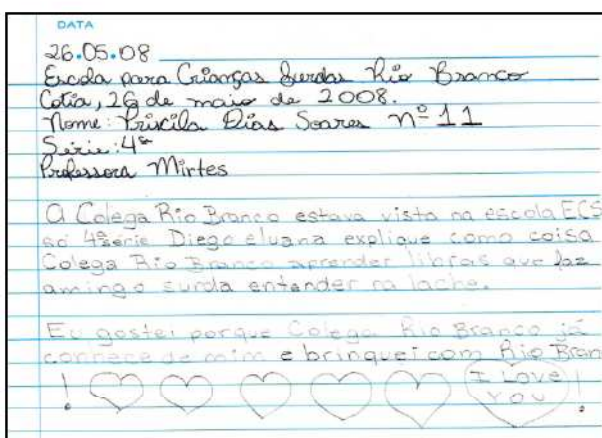 DATA
26.05.08
Escola para Crianças Surdas Rio Branco
Cotia, 26 de maio de 2008.
Nome: Priscila Dias Soares nº 11
Série: 4ª
Professora Mirtes
A Colega Rio Branco estava vista na escola ECS
só 4ª série Diego eluana explique como coisa
Colega Rio Branco aprender libras que faz
amingo surda entender na lache.
Eu gostei porque Colega Rio Branco já
connece de mim e brinquei com Rio Bran
! I Love !
YOU